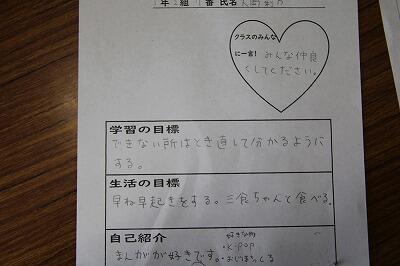 年 組 番 氏名
クラスのみんな
に一言! みんな仲良
くしてください。
学習の目標
できない所はとき直して分かるように
する。
生活の目標
早ね早起きをする。三食ちゃんと食べる。
自己紹介
好きな物
・K-pop
まんがが好きです。